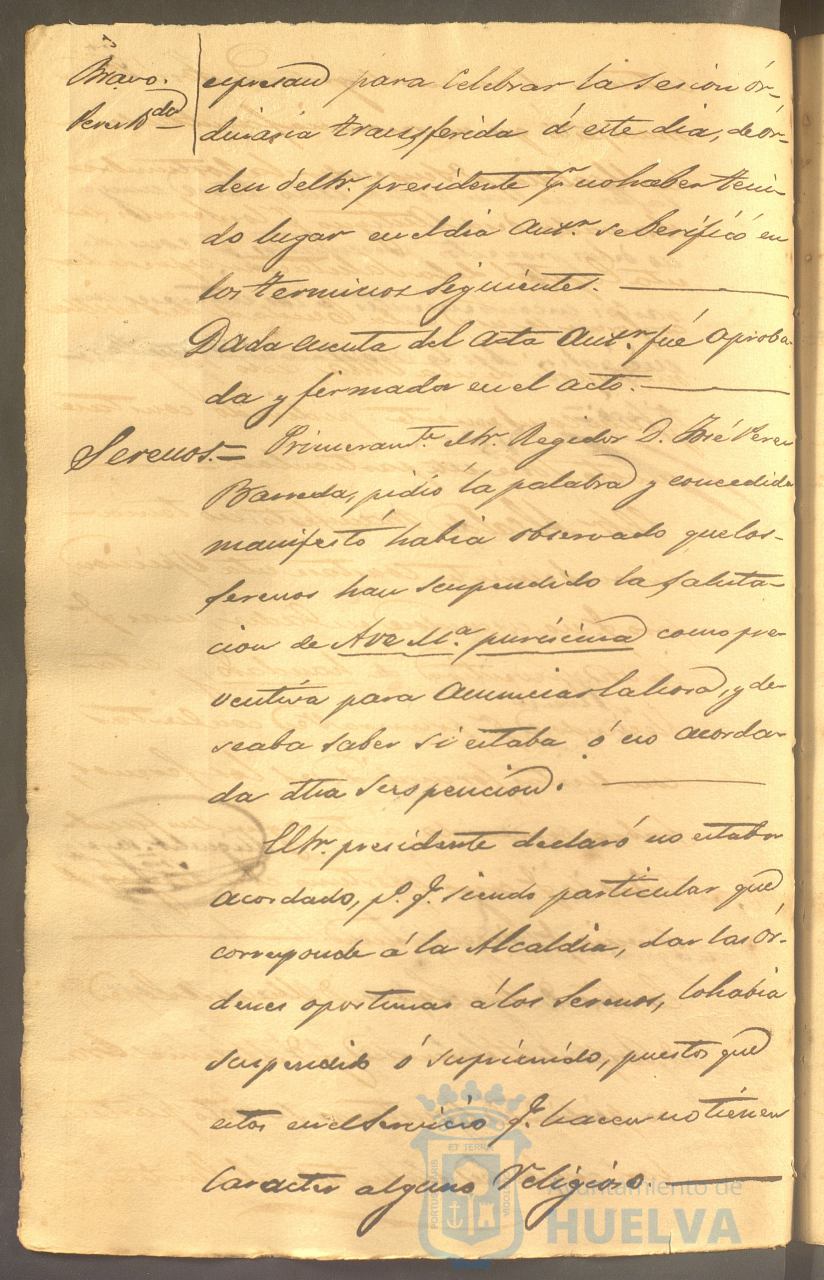 Bravo.
Perez Hdo
espresan para celebrar la sesion ór-
dinaria transferida á este dia, de ór-
den del Sr. presidente pr. no haber teni-
do lugar en el dia antr. se berificó en
los terminos siguientes.
Dada cuenta del acta antr. fué aproba-
da y firmada en el acto.
Serenos.= Primeramte. el Sr. Regidor D. José Perez
Barreda, pidió la palabra y concedida
manifestó, habia observado que los
serenos han suspendido la saluta-
cion de Ave Ma. purisima como pre-
ventiva para anunciar la hora, y de-
seaba saber si estaba ó no acorda-
da dha suspencion.
El Sr. presidente declaró no estaba
acordado, p.o q. siendo particular que
corresponde á la Alcaldia, dar las ór-
denes oportunas á los serenos, lo habia
suspendido ó suprimido, puesto que
estos en el servicio q. hacen no tienen
caracter alguno religioso.
ET TERRA
PORTUS MARIS
CUSTODIA
Ayuntamiento de
HUELVA